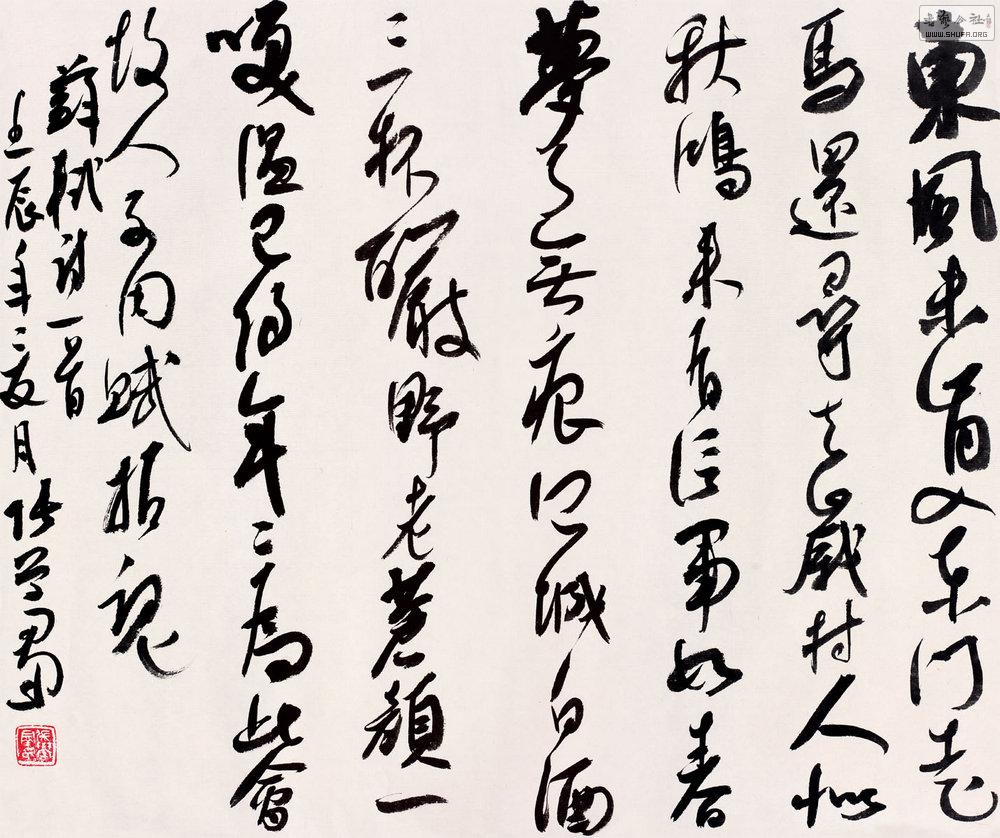 東風未肯入东门走
馬還尋去歲村人似
秋鴻来有信事如春
夢了无痕江城白酒
三杯釅野老蒼顏一
咲溫已約年年為此會
故人不用賦招魂
蘇軾詩一首
壬辰年二月张
WWW.SHUFA.ORG